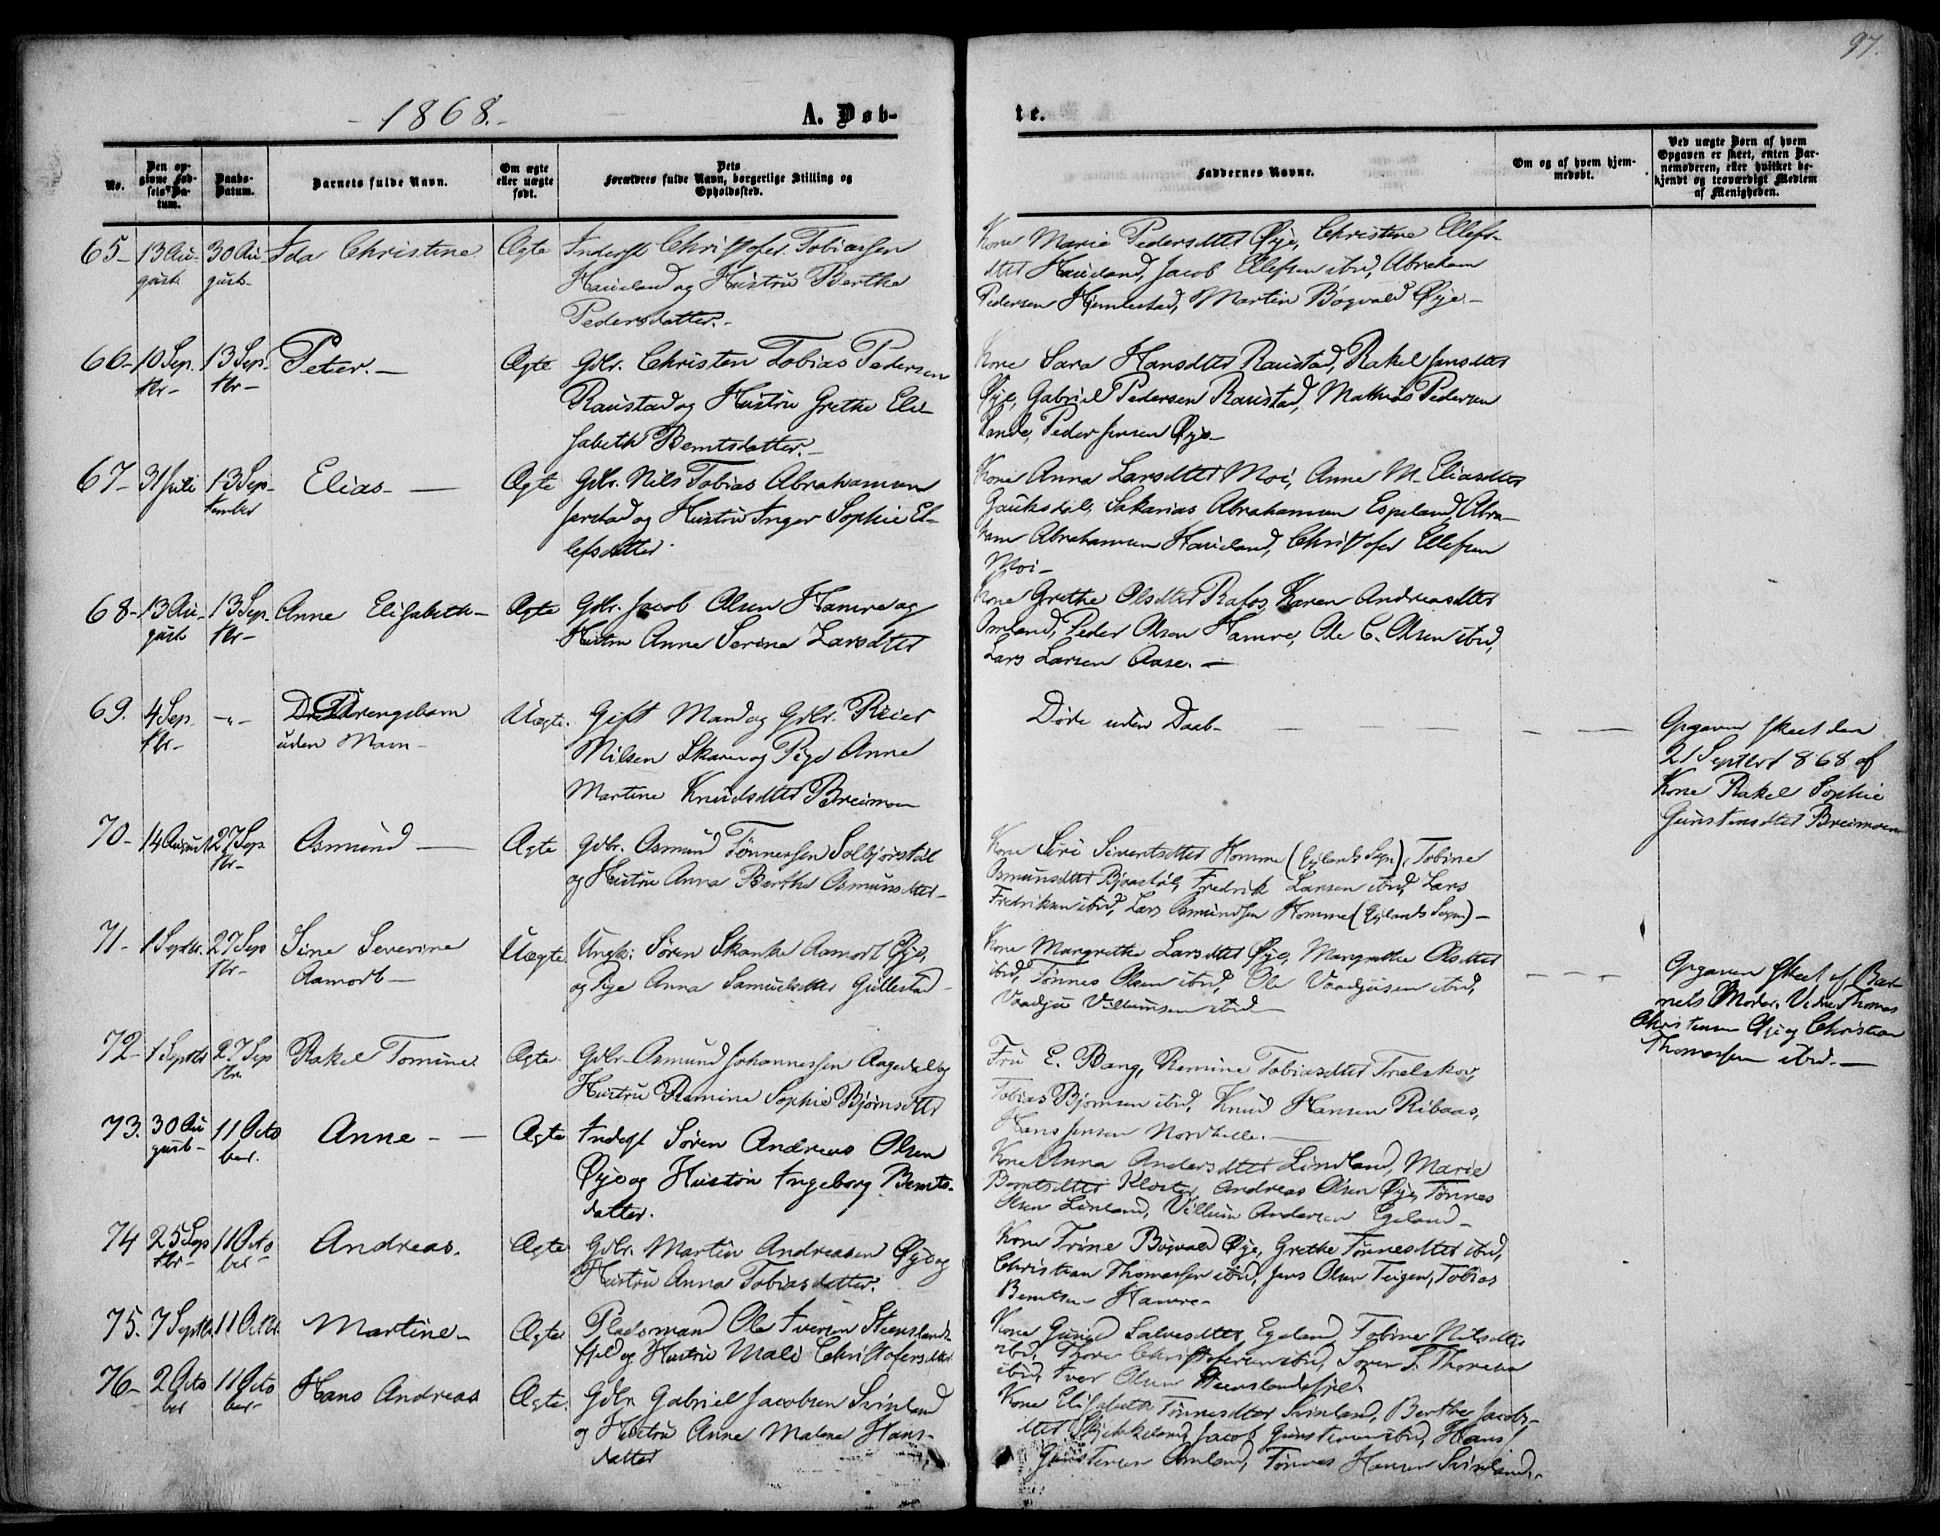 97.
- 1868. -
A. Døb-
te.
No.
Den op-
givne Fød-
sels-Da-
tum.
Daabs-
Datum.
Barnets fulde Navn.
Om ægte
eller uægte
født.
Dets
Forældres fulde Navn, borgerlige Stilling og
Opholdssted.
Faddernes Navne.
Om og af hvem hjem-
medøbt.
Ved uægte Børn af hvem
Opgaven er skeet, enten Bar-
nemoderen, eller hvilket be-
kjendt og troværdigt Medlem
af Menigheden.
65- 13 Au- 30 Au- Ida Christine Ægte Inderst Christofer Tobiassen
gust. gust- Haueland og Hustru Berthe
Pedersdatter. -
Kone Marie Pedersdtter Øye, Christine Ellefs-
dtter Haueland, Jacob Ellefsen ibid, Abraham
Pedersen Hjemlestad, Martin Bøgvald Øye. -
66- 10 Sep. 13 Sep. Peter. - Ægte Gdbr. Christen Tobias Pedersen
tbr- tbr- Raustad og Hustru Grethe Eli-
sabeth Berntsdatter. -
Kone Sara Hansdtter Raustad, Rakel Jensdtter
Øye, Gabriel Pedersen Raustad, Mathias Pedersen
Sande, Peder Jensen Øye -
67- 31 Juli 13 Sep- Elias - Ægte Gdbr. Nils Tobias Abrahamsen
tember Jerstad og Hustru Inger Sophie El-
lefsdatter.
Kone Anna Larsdtter Moi, Anne M. Eliasdtter
Gauksdal, Sakarias Abrahamsen Espeland, Abra-
ham Abrahamsen Haueland, Christofer Ellefsen
Moi -
68- 13 Au- 13 Sep. Anne Elisabeth - Ægte Gdbr. Jacob Olsen Hamre og
gust tbr- Hustru Anne Serine Larsdtter
Kone Grethe Olsdtter Rafos, Karen Andreasdtter
Omland, Peder Olsen Hamre, Ole C. Olsen ibid,
Lars Larsen Aase. -
69. 4 Sep. -"- Drengebarn Uægte. Gift Mand og Gdbr. Reier
tbr- uden Navn - Nilsen Skaren og Pige Anne
Martine Knudsdtter Breimoen
Døde uden Daab -
Opgaven skeet den
21 Septbr 1868 af
Kone Rakel Sophie
Gunstensdtter Breimoen
70- 14 August 27 Sep. Osmund - Ægte Gdbr. Osmund Tønnessen Solbjørstøl
tbr- og Hustru Anna Berthe Osmundsdtter -
Kone Siri Sivertsdtter Homme (Egelands Sogn), Tobine
Osmundsdtter Bjørstøl, Fredrik Larsen ibid, Lars
Fredriksen ibid, Lars Osmundsen Homme (Egelands Sogn) -
71- 1 Septbr. 27 Sep Sine Severine Uægte. Ungk: Søren Skanke Aamodt Øye,
tbr- Aamodt - og Pige Anna Samuelsdtter Gullestad -
Kone Margrethe Larsdtter Øye, Margrethe Olsdtter
ibid, Tønnes Olsen ibid, Ole Vaadjusen ibid,
Vaadju Villumsen ibid -
Opgaven skeet af Bar-
nets Moder. Vidne Thomas
Christensen Øye og Christian
Thomassen ibid. -
72- 1 Septbr 27 Sep Rakel Tomine. Ægte- Gdbr- Osmund Johannessen Aagedal og
tbr. Hustru Remine Sophie Bjørnsdtter
Fru E. Bang, Remine Tobiasdtter Trelskov,
Tobias Bjørnsen ibid, Knud Hansen Ribaas,
Hans Jensen Nordhelle. -
73. 30 Au 11 Octo Anne - - Ægte Inderst Søren Andreas Olsen
gust- ber. Øye og Hustru Ingeborg Bernts-
datter.
Kone Anna Andersdtter Lindland, Marie
Berntsdtter Kloster, Andreas Olsen Øye, Tønnes
Olsen Lindland, Villum Andersen Egeland -
74 25 Sep 11 Octo Andreas. Ægte Gdbr. Martin Andreasen Øye og
tbr- ber- Hustru Anna Tobiasdatter.
Kone Trine Bøgvald Øye, Grethe Tønnesdtter ibid,
Christian Thomassen ibid, Jens Olsen Teigen, Tobias
Berntsen Hamre -
75. 7 Septbr 11 Octbr. Martine - Ægte Pladsmand Ole Iversen Steenslands-
fjeld og Hustru Mali Christofersdtter
Kone Gunild Salvesdtter Egeland, Tobine Nilsdtter
ibid, Thore Christofersen ibid, Søren T. Thoresen
ibid, Iver Olsen Steenslandsfjeld
76- 2 Octo 11 Octo Hans Andreas Ægte. Gdbr. Gabriel Jacobsen Svinland
ber ber- og Hustru Anne Malene Hans-
datter
Kone Elisabeth Tønnesdtter Svinland, Berthe Jacobs-
dtter Skjekkeland, Jacob Gunstensen ibid, Hans
Gunstensen Omland, Tønnes Hansen Svinland. -